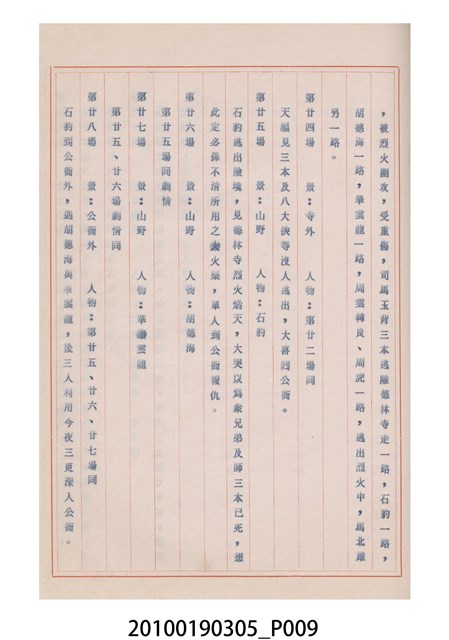 ，被烈火圍攻，受重傷，司馬玉背三本逃離德林寺走一路，石豹一路，
胡德海一路，華雲龍一路，周雲韓良、周虎一路，逃出烈火中，馬北雄
另一路。
第廿四場　景：寺外　人物：第廿二場同
天福見三本及八大俠等沒人逃出，大喜回公衙。
第廿五場　景：山野　人物：石豹
石豹逃出險境，見德林寺烈火焰天，大哭以為衆兄弟及師三本已死，想
此定必孫不清所用之火藥，單人到公衙報仇。
第廿六場　景：山野　人物：胡德海
第廿五場同劇情
第廿七場　景：山野　人物：華雲龍
第廿五、廿六場劇情同
第廿八場　景：公衙外　人物：第廿五、廿六、廿七場同
石豹到公衙外，遇胡德海與華雲龍，後三人利用今夜三更深入公衙。
20100190305_P009